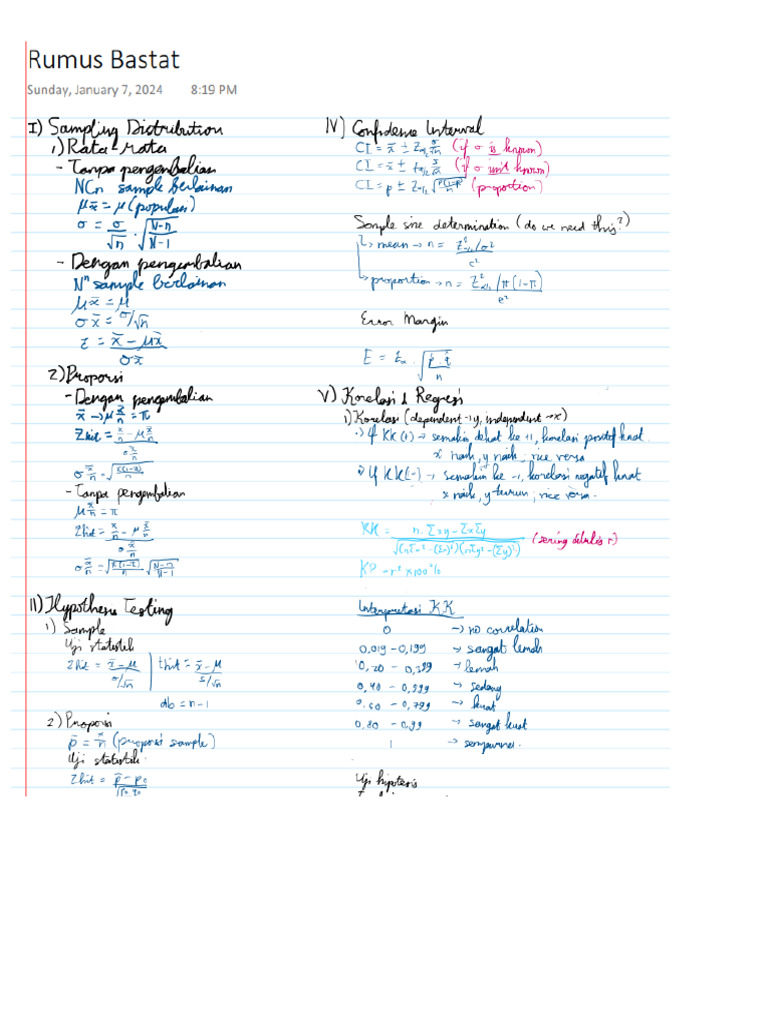 Rumus Bastat
Sunday, January 7, 2024 8:19 PM
I) Sampling Distribution
1) Rata-Rata
- Tanpa pengembalian
NCn sample berlainan
μx̄ = μ (populasi)
σ = σ/√n · √(N-n)/(N-1)
- Dengan pengembalian
Nⁿ sample berlainan
μx̄ = μ
σx̄ = σ/√n
z = (x̄ - μx̄)/σx̄
2) Proporsi
- Dengan pengembalian
x̄ → μ x/n = π
Zhit = (x/n - μ x/n)/(σ x/n)
- Tanpa pengembalian
μ x/n = π
Zhit = (x/n - μ x/n)/(σ x/n)
II) Hypothesis Testing
1) Sample
Uji statistik
Zhit = (x̄ - μ)/(σ/√n) | thit = (x̄ - μ)/(s/√n)
db = n-1
2) Proporsi
p̄ = x/n (proporsi sample)
Uji statistik
Zhit = (p̄ - p₀)/√p₀ q₀
IV) Confidense Interval
CI = x̄ ± Zα/2 σ/√n (if σ is known)
CI = x̄ ± tα/2 s/√n (if σ isn't known)
CI = p ± Zα/2 √p(1-p)/n (proportion)
Sample size determination (do we need this?)
↳ mean → n = Z²α/2 σ²/e²
↳ proportion → n = Z²α/2 π(1-π)/e²
Error Margin
E = Zα · √(p̄ · q̄)/n
V) Korelasi & Regresi
1) Korelasi (dependent → y, independent → x)
If KK (+) → semakin dekat ke +1, korelasi positif kuat
x naik, y naik; vice versa
If KK (-) → semakin ke -1, korelasi negatif kuat
x naik, y turun; vice versa.
KK = (n·Σxy - Σx Σy)/√(nΣx² - (Σx)²)(nΣy² - (Σy)²) (sering ditulis r)
KP = r² × 100%
Interpretasi KK
0 → no correlation
0,019 - 0,199 → sangat lemah
0,20 - 0,399 → lemah
0,40 - 0,599 → sedang
0,60 - 0,799 → kuat
0,80 - 0,99 → sangat kuat
1 → sempurna
Uji hipotesis